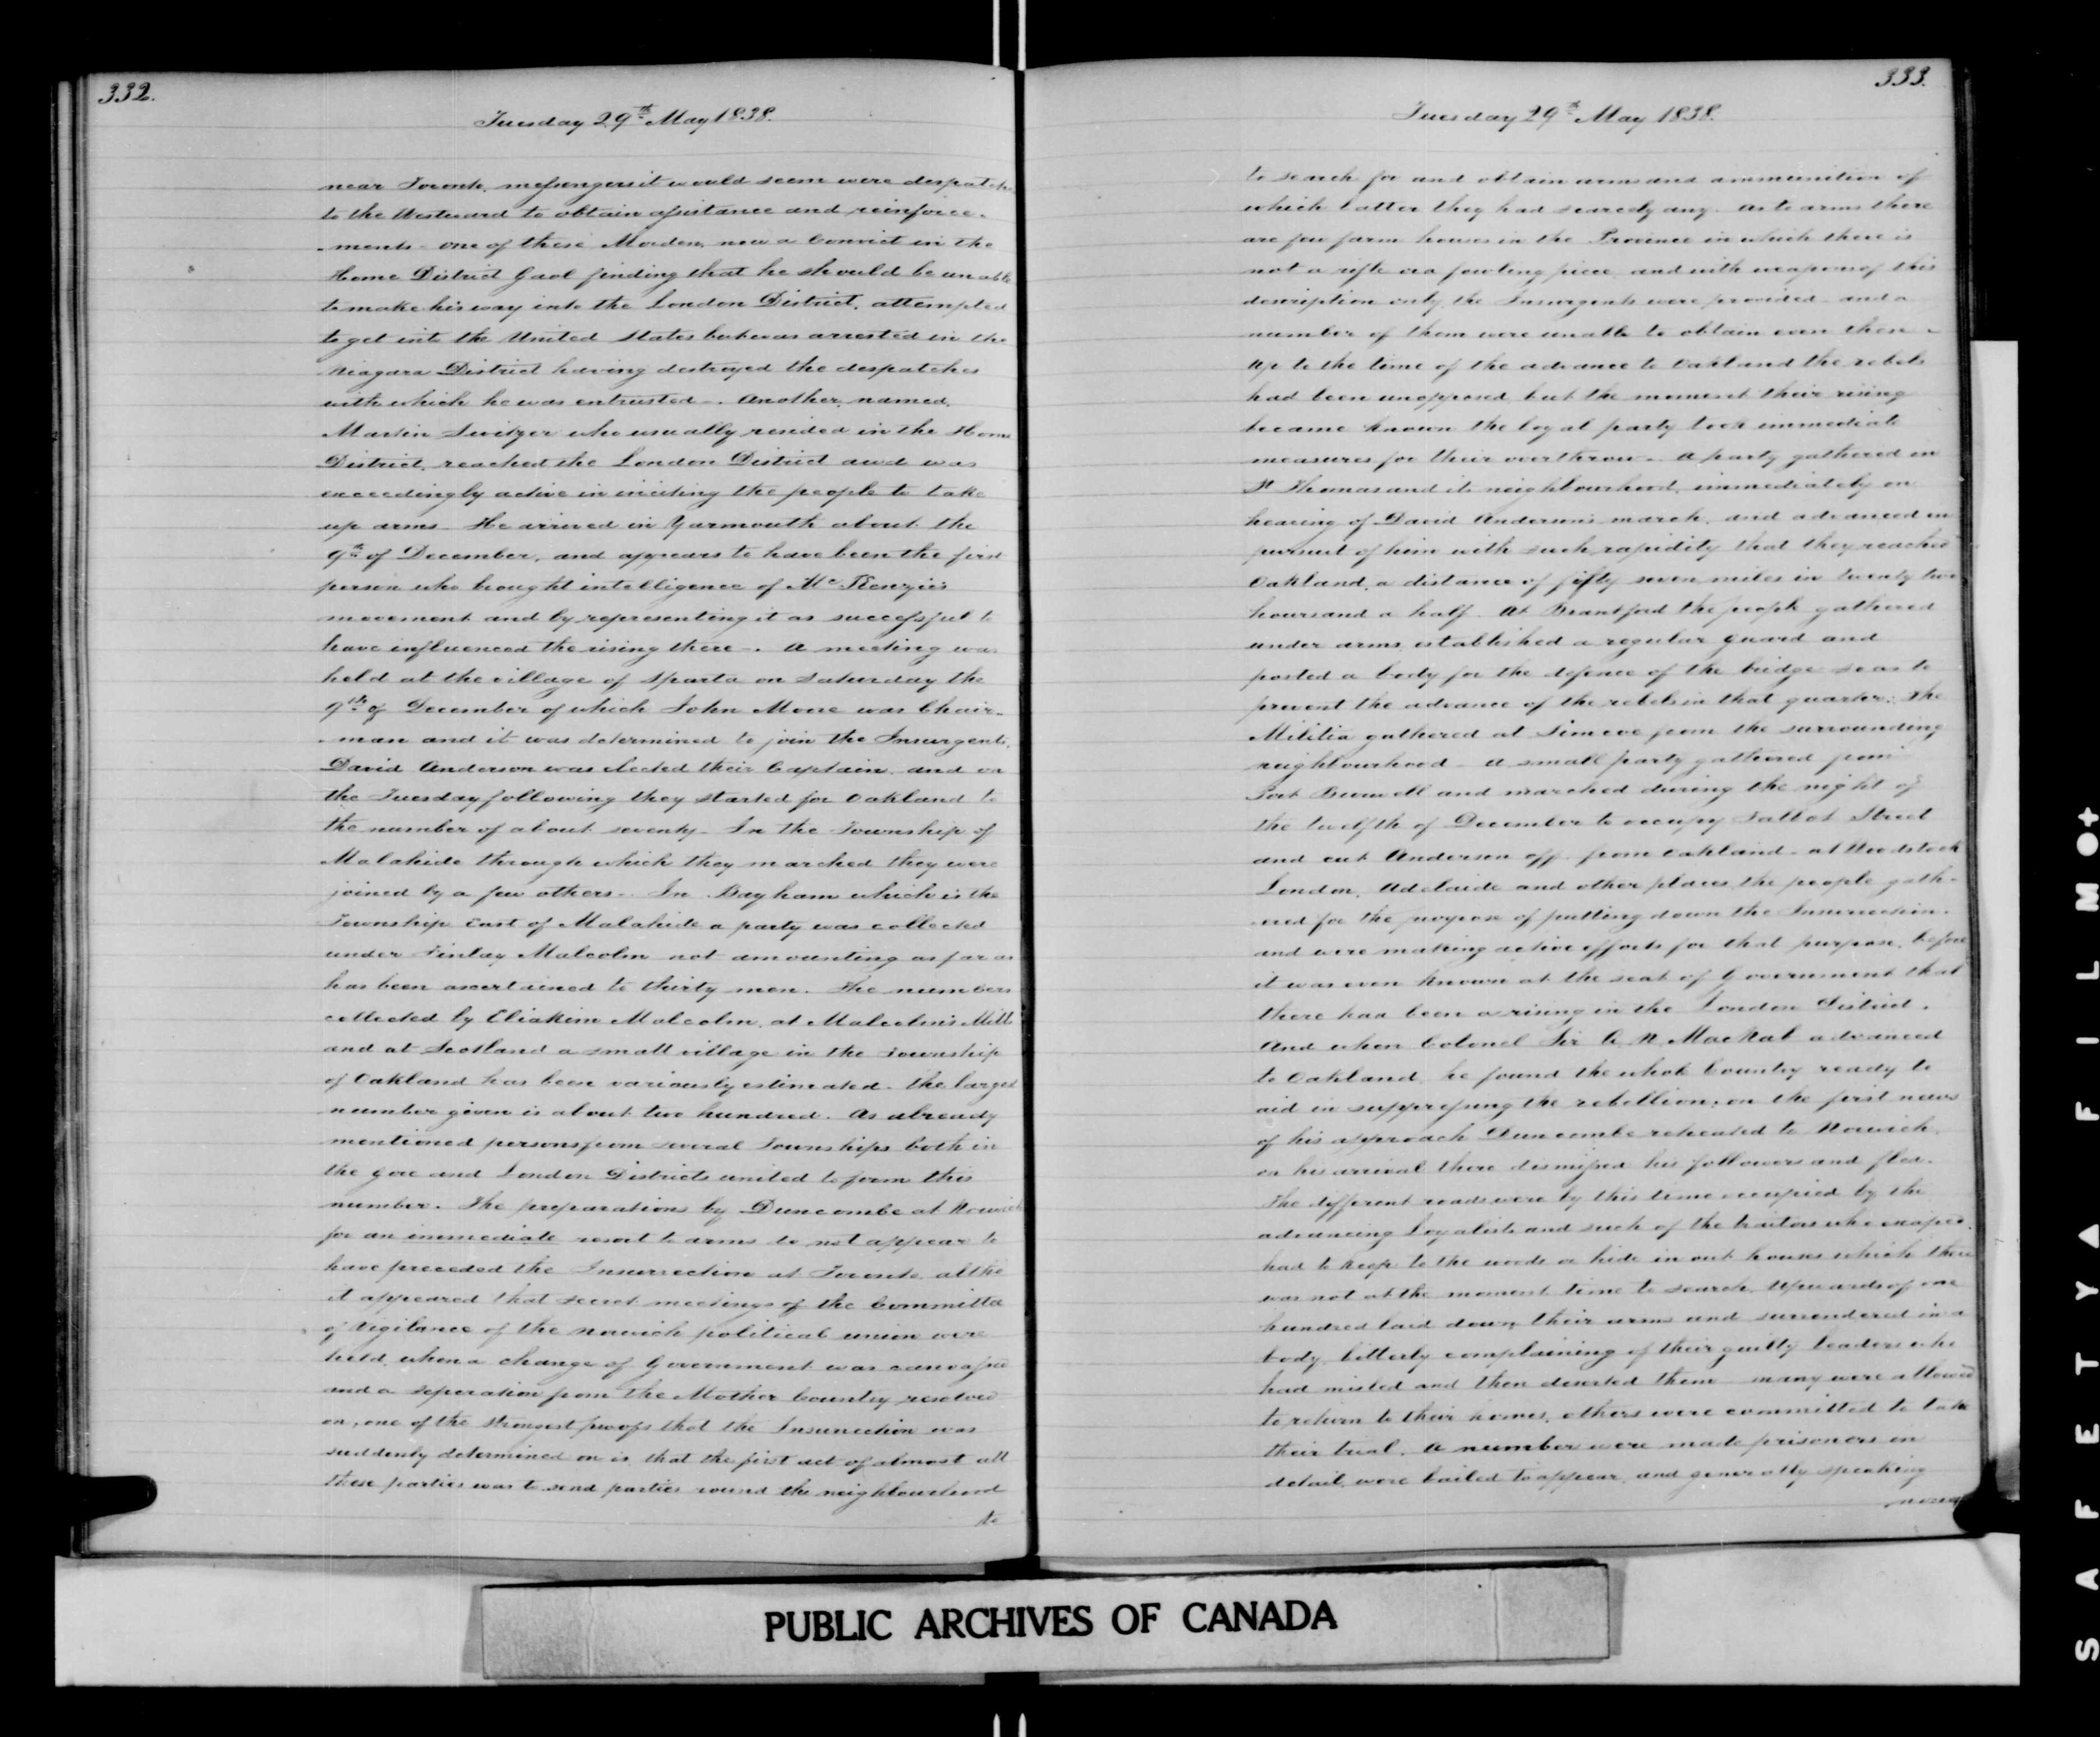 332.
Tuesday 29th May 1838.
near Toronto, messengers it would seem were despatche
to the Westward to obtain assistance and reinforce-
-ments - one of these Morden, now a Convict in the
Home District Gaol finding that he should be unable
to make his way into the London District, attempted
to get into the United States but was arrested in the
Niagara District having destroyed the despatches
with which he was entrusted -. Another, named,
Martin Switzer who usually resided in the Home
District, reached the London District and was
exceedingly active in inciting the people to take
up arms - He arrived in Yarmouth about the
9th of December, and appears to have been the first
person who brought intelligence of McKenzie's
movement and by representing it as successful to
have influenced the rising there -. A meeting was
held at the village of Sparta on Saturday the
9th of December of which John Moore was Chair-
-man and it was determined to join the Insurgents,
David Anderson was elected their Captain, and on
the Tuesday following they started for Oakland to
the number of about seventy - In the Township of
Malahide through which they marched they were
joined by a few others -. In Bayham which is the
Township East of Malahide a party was collected
under Finlay Malcolm not amounting as far as
has been ascertained to thirty men. The numbers
collected by Eliakim Malcolm, at Malcolm's Mills
and at Scotland a small village in the Township
of Oakland has been variously estimated - the largest
number given is about two hundred. As already
mentioned persons from several Townships both in
the Gore and London Districts united to form this
number. The preparations by Duncombe at Norwich
for an immediate resort to arms do not appear to
have preceded the Insurrection at Toronto, altho'
it appeared that secret meetings of the Committee
of Vigilance of the Norwich political union were
held, when a change of Government was canvassed
and a seperation from the Mother Country resolved
on, one of the strongest proofs that the Insurrection was
suddenly determined on is, that the first act of almost all
these parties was to send parties round the neighbourhood
to
333.
Tuesday 29th May 1838.
to search for and obtain arms and ammunition of
which latter they had scarcely any. As to arms there
are few farm houses in the Province in which there is
not a rifle or a fowling piece, and with weapons of this
description only the Insurgents were provided - and a
number of them were unable to obtain even these -
Up to the time of the advance to Oakland the rebels
had been unopposed, but the moment their rising
became known the loyal party took immediate
measures for their overthrow -. A party gathered in
St Thomas and its neighbourhood, immediately on
hearing of David Anderson's march, and advanced in
pursuit of him with such rapidity that they reached
Oakland, a distance of fifty seven miles in twenty two
hours and a half. At Brantford the people gathered
under arms, established a regular guard and
posted a body for the defence of the bridge so as to
prevent the advance of the rebels in that quarter: The
Militia gathered at Simcoe from the surrounding
neighbourhood - a small party gathered from
Port Burwell and marched during the night of
the twelfth of December to occupy Talbot Street
and cut Anderson off from Oakland - at Woodstock
London, Adelaide and other places, the people gath-
-ered for the purpose of putting down the Insurrection.
and were making active efforts for that purpose, before
it was even known at the seat of Government that
there had been a rising in the London District.
And when Colonel Sir A. N. MacNab advanced
to Oakland, he found the whole Country ready to
aid in suppressing the rebellion; on the first news
of his approach Duncombe retreated to Norwich.
on his arrival there dismissed his followers and fled.
The different roads were by this time occupied by the
advancing Loyalists and such of the traitors who escaped,
had to keep to the woods or hide in out houses which there
was not at the moment time to search. Upwards of one
hundred laid down their arms and surrendered in a
body bitterly complaining of their guilty leaders who
had misled and then deserted them - many were allowed
to return to their homes, others were committed to take
their trial. A number were made prisoners in
detail, were bailed to appear, and generally speaking
PUBLIC ARCHIVES OF CANADA
SAFETY FILM